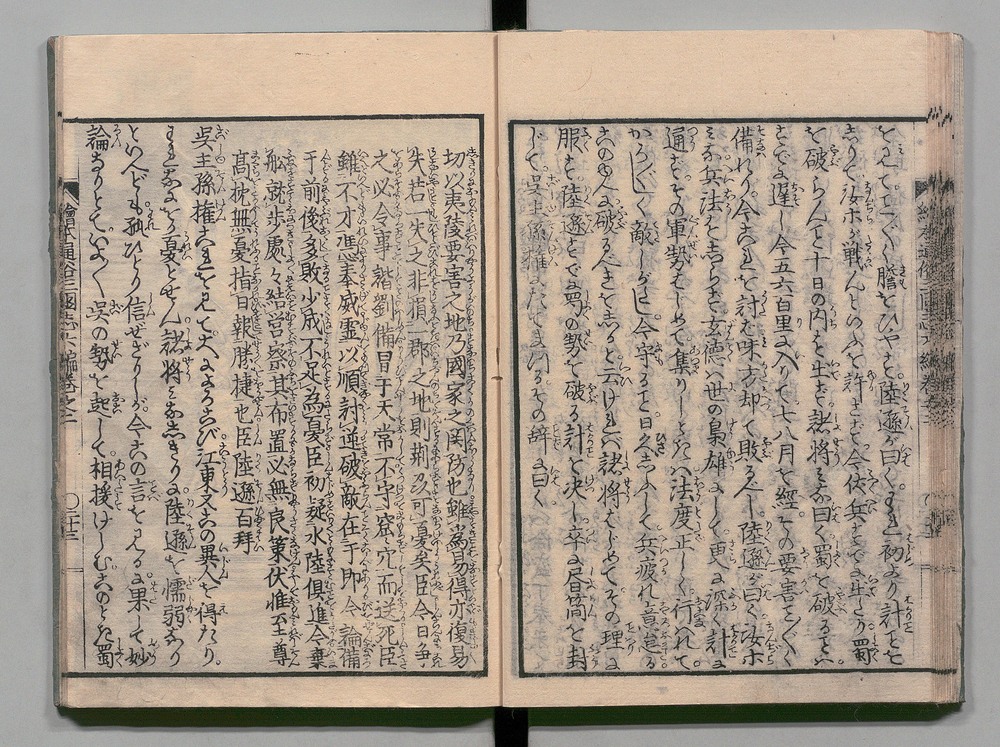 を見て、こと〴〵く膽をひやせり、陸遜が曰く、われ初より計を
しりて汝ホが戦んといふを許さず今伏兵すでに出たり蜀
を破らんと十日の内を出ず諸将みな曰く蜀を破るとハ
すでに遅し今五六百里に入りて七八月を經その要害こと〴〵く
備れり今これを討バ味方却て敗るべし陸遜が曰く汝ホ
みな兵法をしらず玄德ハ世の梟雄にして更に深く計に
通ずその軍勢はじめて集りしときハ法度正しく行れて
かろ〴〵しく敵しがたし今守ること日久しふして兵疲れ意怠る
このゆへに破るべきをしると云けれバ諸将はじめてその理に
服す陸遜すでに蜀の勢を破る計を決し卒に書簡を封
じて、呉主孫權にたてまつるその辞に曰く
切以夷陵要害之地乃國家之関防也雖為易得亦復易
失若一失之非損一郡之地則荆可憂矣臣今日争
之必令事諧劉備冒于天常不守窟穴而送死臣
雖不才憑奉威霊以順討逆破敵在于即今論備
于前後多敗少成不足為憂臣初疑水陸俱進今棄
舩就歩處々結営察其布置必無良策伏惟至尊
高枕無憂指日報勝捷也臣陸遜百拜
呉主孫權これを見て、大によろこび江東又この異人を得たり。
われなにをか憂とせん諸将みなしきりに陸遜を懦弱なり
といへども孤ひとり信ぜざりしが今この言を見るに果して妙
論なりとていよ〳〵呉の勢を起して相援けしむこのとき蜀
繪本通俗三國志六編巻之二
〇二十三